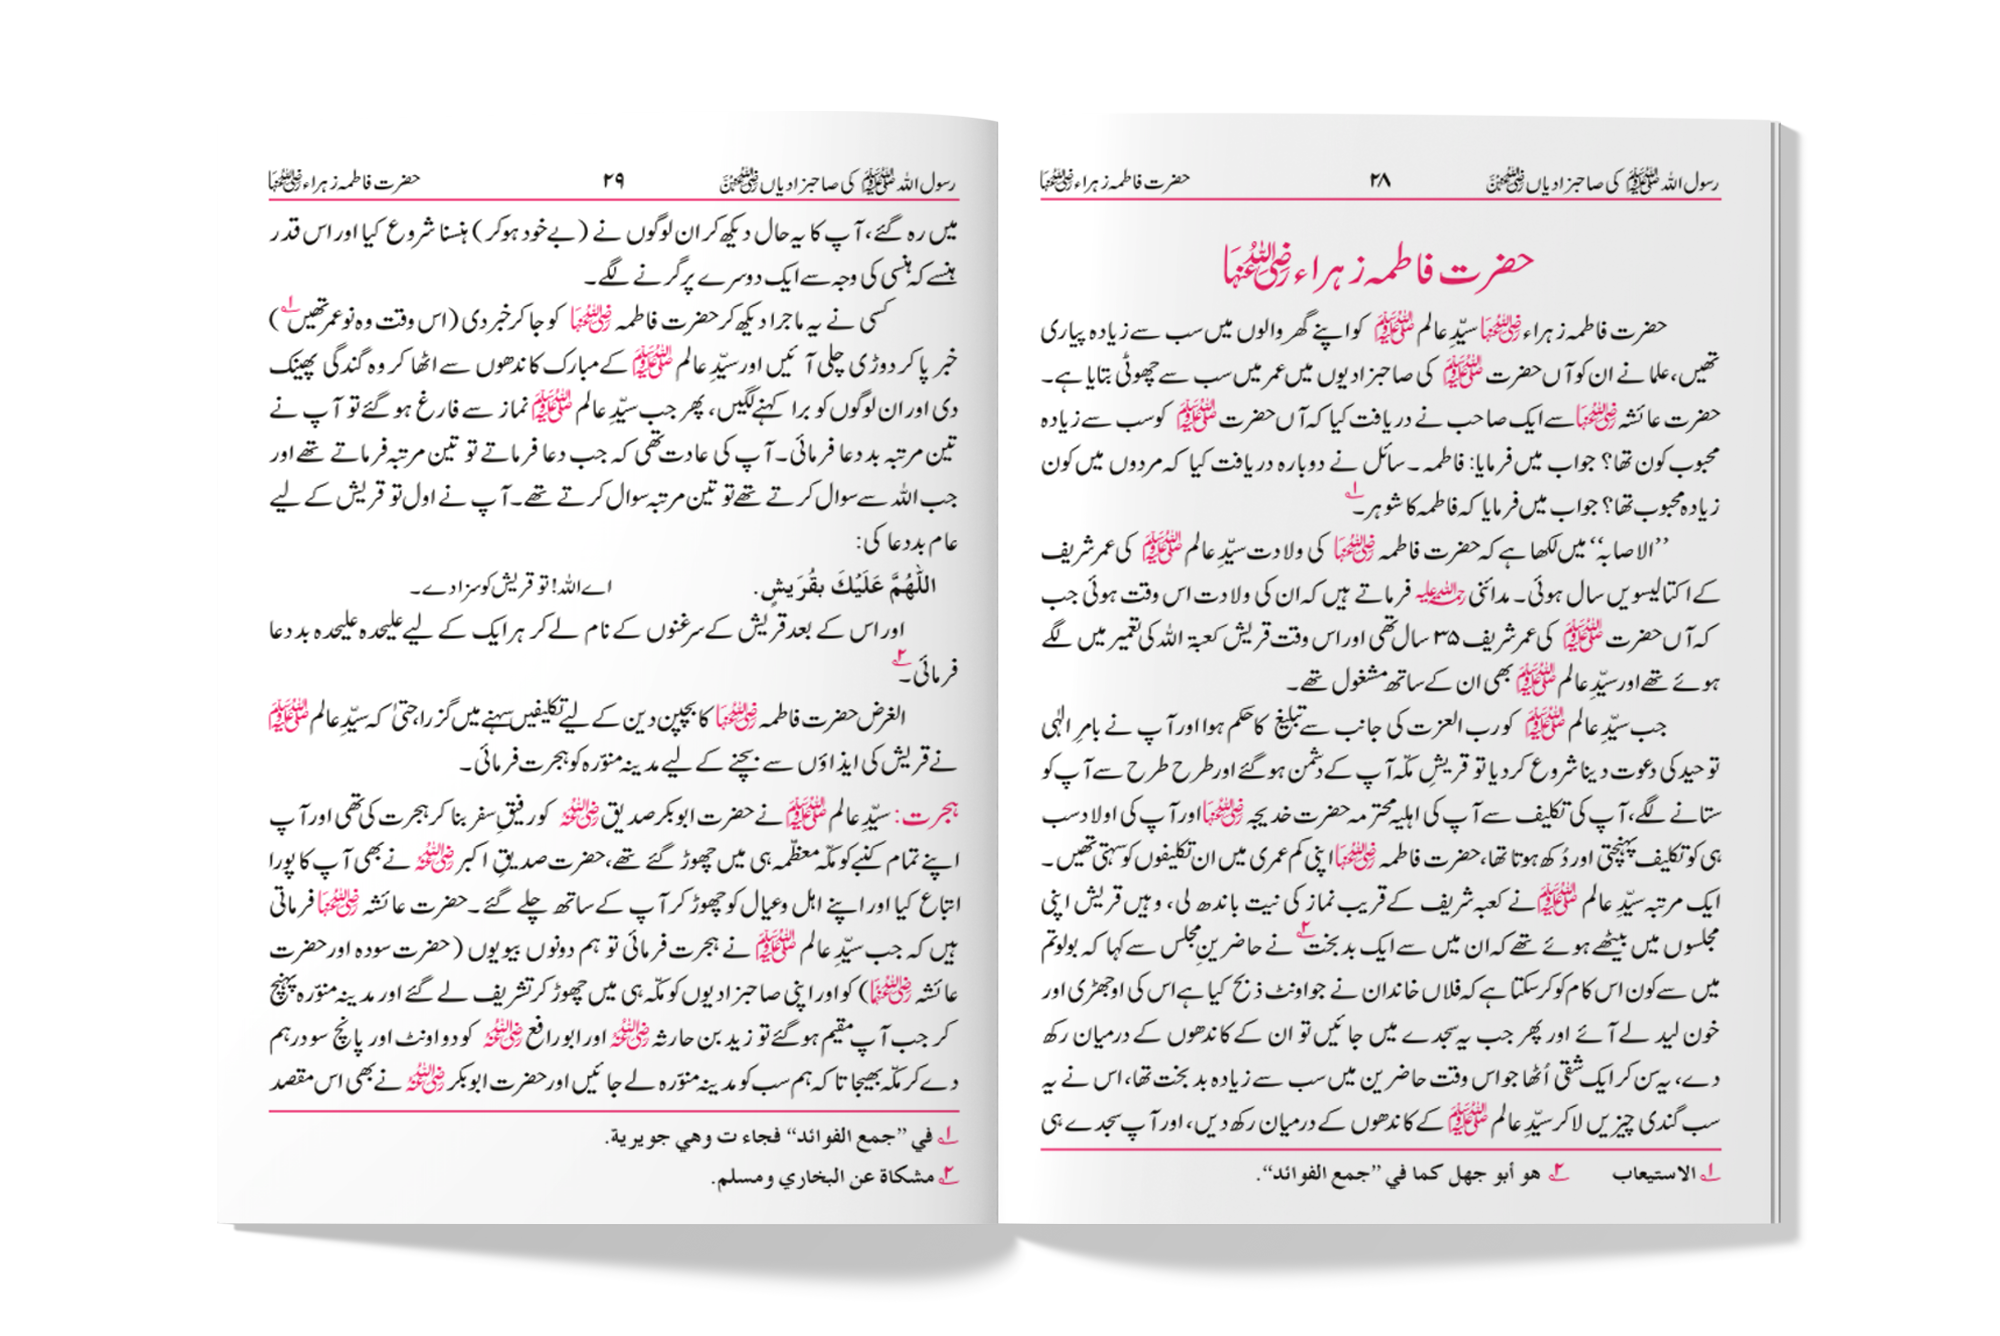 رسول اللہ ﷺ کی صاحبزادیاں رضی اللہ عنہن ۲۸ حضرت فاطمہ زہراء رضی اللہ عنہا
حضرت فاطمہ زہراء رضی اللہ عنہا
حضرت فاطمہ زہراء رضی اللہ عنہا سیّدِ عالم ﷺ کو اپنے گھر والوں میں سب سے زیادہ پیاری
تھیں، علما نے ان کو آں حضرت ﷺ کی صاحبزادیوں میں عمر میں سب سے چھوٹی بتایا ہے۔
حضرت عائشہ رضی اللہ عنہا سے ایک صاحب نے دریافت کیا کہ آں حضرت ﷺ کو سب سے زیادہ
محبوب کون تھا؟ جواب میں فرمایا: فاطمہ۔ سائل نے دوبارہ دریافت کیا کہ مردوں میں کون
زیادہ محبوب تھا؟ جواب میں فرمایا کہ فاطمہ کا شوہر۔ ۱
”الاصابہ“ میں لکھا ہے کہ حضرت فاطمہ رضی اللہ عنہا کی ولادت سیّدِ عالم ﷺ کی عمر شریف
کے اکتالیسویں سال ہوئی۔ مدائنی رحمۃ اللہ علیہ فرماتے ہیں کہ ان کی ولادت اس وقت ہوئی جب
کہ آں حضرت ﷺ کی عمر شریف ۳۵ سال تھی اور اس وقت قریش کعبۃ اللہ کی تعمیر میں لگے
ہوئے تھے اور سیّدِ عالم ﷺ بھی ان کے ساتھ مشغول تھے۔
جب سیّدِ عالم ﷺ کو رب العزت کی جانب سے تبلیغ کا حکم ہوا اور آپ نے بامرِ الٰہی
توحید کی دعوت دینا شروع کر دیا تو قریشِ مکّہ آپ کے دشمن ہو گئے اور طرح طرح سے آپ کو
ستانے لگے، آپ کی تکلیف سے آپ کی اہلیہ محترمہ حضرت خدیجہ رضی اللہ عنہا اور آپ کی اولاد سب
ہی کو تکلیف پہنچتی اور دُکھ ہوتا تھا، حضرت فاطمہ رضی اللہ عنہا اپنی کم عمری میں ان تکلیفوں کو سہتی تھیں۔
ایک مرتبہ سیّدِ عالم ﷺ نے کعبہ شریف کے قریب نماز کی نیت باندھ لی، وہیں قریش اپنی
مجلسوں میں بیٹھے ہوئے تھے کہ ان میں سے ایک بدبخت ۲ نے حاضرینِ مجلس سے کہا کہ بولو تم
میں سے کون اس کام کو کر سکتا ہے کہ فلاں خاندان نے جو اونٹ ذبح کیا ہے اس کی اوجھڑی اور
خون لید لے آئے اور پھر جب یہ سجدے میں جائیں تو ان کے کاندھوں کے درمیان رکھ
دے، یہ سن کر ایک شقی اُٹھا جو اس وقت حاضرین میں سب سے زیادہ بدبخت تھا، اس نے یہ
سب گندی چیزیں لا کر سیّدِ عالم ﷺ کے کاندھوں کے درمیان رکھ دیں، اور آپ سجدے ہی
۱ الاستیعاب ۲ هو أبو جهل كما في ”جمع الفوائد“.
رسول اللہ ﷺ کی صاحبزادیاں رضی اللہ عنہن ۲۹ حضرت فاطمہ زہراء رضی اللہ عنہا
میں رہ گئے، آپ کا یہ حال دیکھ کر ان لوگوں نے (بے خود ہو کر) ہنسنا شروع کیا اور اس قدر
ہنسے کہ ہنسی کی وجہ سے ایک دوسرے پر گرنے لگے۔
کسی نے یہ ماجرا دیکھ کر حضرت فاطمہ رضی اللہ عنہا کو جا کر خبر دی (اس وقت وہ نوعمر تھیں ۱)
خبر پا کر دوڑی چلی آئیں اور سیّدِ عالم ﷺ کے مبارک کاندھوں سے اٹھا کر وہ گندگی پھینک
دی اور ان لوگوں کو برا کہنے لگیں، پھر جب سیّدِ عالم ﷺ نماز سے فارغ ہو گئے تو آپ نے
تین مرتبہ بددعا فرمائی۔ آپ کی عادت تھی کہ جب دعا فرماتے تو تین مرتبہ فرماتے تھے اور
جب اللہ سے سوال کرتے تھے تو تین مرتبہ سوال کرتے تھے۔ آپ نے اول تو قریش کے لیے
عام بددعا کی:
اللّٰهُمَّ عَلَيْكَ بِقُرَيْشٍ. اے اللہ! تو قریش کو سزا دے۔
اور اس کے بعد قریش کے سرغنوں کے نام لے کر ہر ایک کے لیے علیحدہ علیحدہ بددعا
فرمائی۔ ۲
الغرض حضرت فاطمہ رضی اللہ عنہا کا بچپن دین کے لیے تکلیفیں سہنے میں گزرا، حتیٰ کہ سیّدِ عالم ﷺ
نے قریش کی ایذاؤں سے بچنے کے لیے مدینہ منوّرہ کو ہجرت فرمائی۔
ہجرت: سیّدِ عالم ﷺ نے حضرت ابوبکر صدیق رضی اللہ عنہ کو رفیقِ سفر بنا کر ہجرت کی تھی اور آپ
اپنے تمام کنبے کو مکّہ معظّمہ ہی میں چھوڑ گئے تھے، حضرت صدیقِ اکبر رضی اللہ عنہ نے بھی آپ کا پورا
اتباع کیا اور اپنے اہل وعیال کو چھوڑ کر آپ کے ساتھ چلے گئے۔ حضرت عائشہ رضی اللہ عنہا فرماتی
ہیں کہ جب سیّدِ عالم ﷺ نے ہجرت فرمائی تو ہم دونوں بیویوں (حضرت سودہ اور حضرت
عائشہ رضی اللہ عنہما) کو اور اپنی صاحبزادیوں کو مکّہ ہی میں چھوڑ کر تشریف لے گئے اور مدینہ منوّرہ پہنچ
کر جب آپ مقیم ہو گئے تو زید بن حارثہ رضی اللہ عنہ اور ابو رافع رضی اللہ عنہ کو دو اونٹ اور پانچ سو درہم
دے کر مکّہ بھیجا تاکہ ہم سب کو مدینہ منوّرہ لے جائیں اور حضرت ابوبکر رضی اللہ عنہ نے بھی اس مقصد
۱ في ”جمع الفوائد“ فجاءت وهي جويرية.
۲ مشكاة عن البخاري ومسلم.